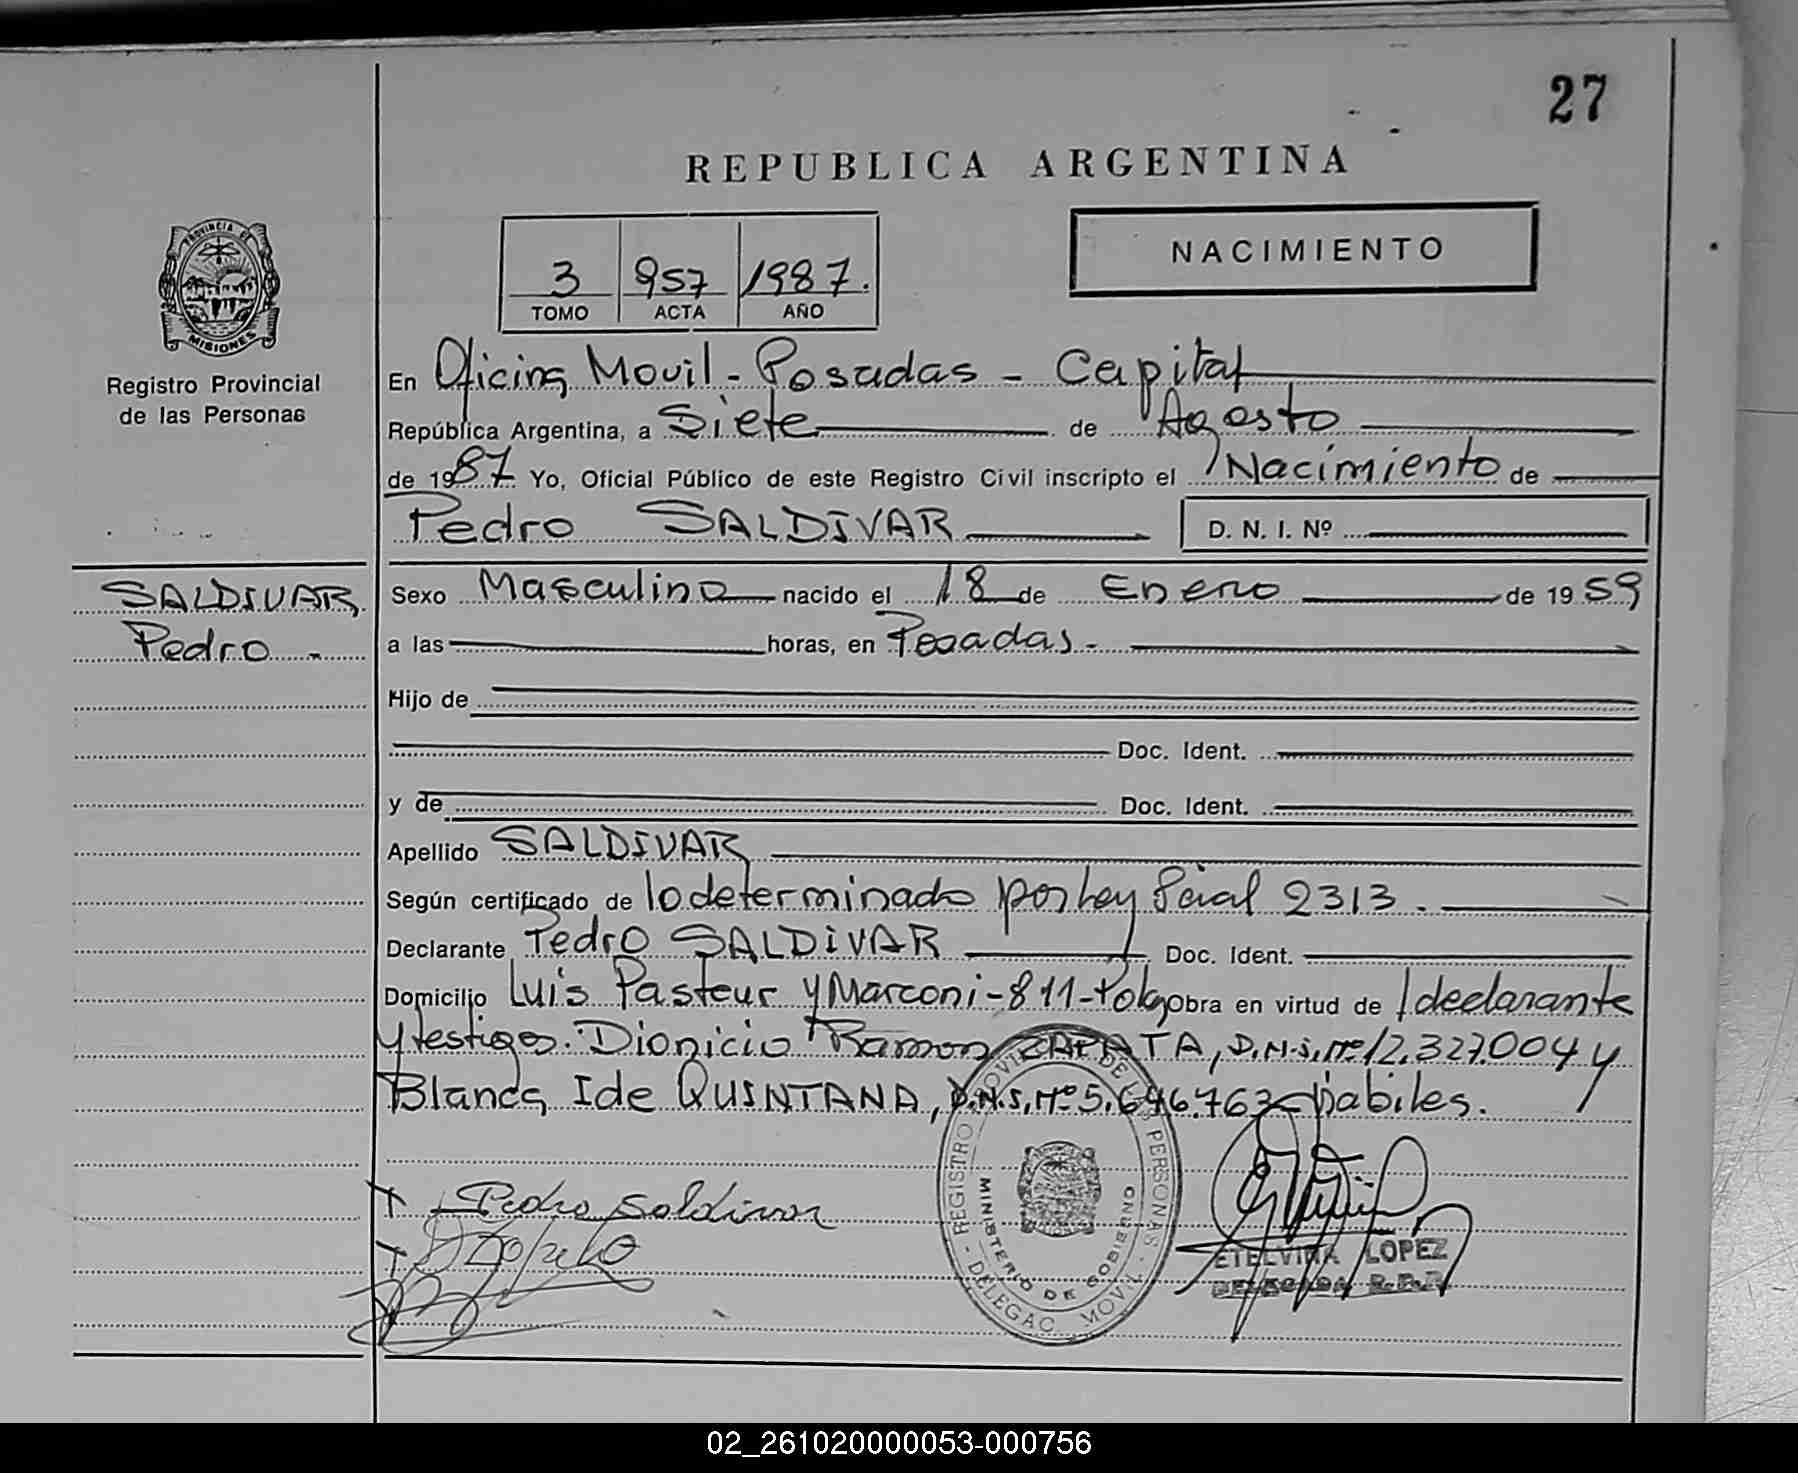 27
REPUBLICA ARGENTINA
PROVINCIA DE
MISIONES
Registro Provincial
de las Personas
3 957 1987.
TOMO ACTA AÑO
NACIMIENTO
En Oficina Movil - Posadas - Capital
República Argentina, a Siete de Agosto
de 1987 Yo, Oficial Público de este Registro Civil inscripto el Nacimiento de
Pedro SALDIVAR D. N. I. Nº
SALDIVAR,
Pedro -
Sexo Masculino nacido el 18 de Enero de 1959
a las horas, en Posadas -
Hijo de
Doc. Ident.
y de Doc. Ident.
Apellido SALDIVAR
Según certificado de lo determinado por Ley 2313.
Declarante Pedro SALDIVAR Doc. Ident.
Domicilio Luis Pasteur y Marconi - 811 - Obra en virtud de l declarante
y testigos. Dionicio Ramon ZAPATA, D.N.I. Nº 12.327.004 y
Blanca Ide QUINTANA, D.N.I. Nº 5.646.763 habiles.
Pedro Saldivar
REGISTRO PROVINCIAL DE LAS PERSONAS - DELEGAC. MOVIL -
MINISTERIO DE GOBIERNO
ETELVINA LOPEZ
DELEGADA R.P.P.
02_261020000053-000756